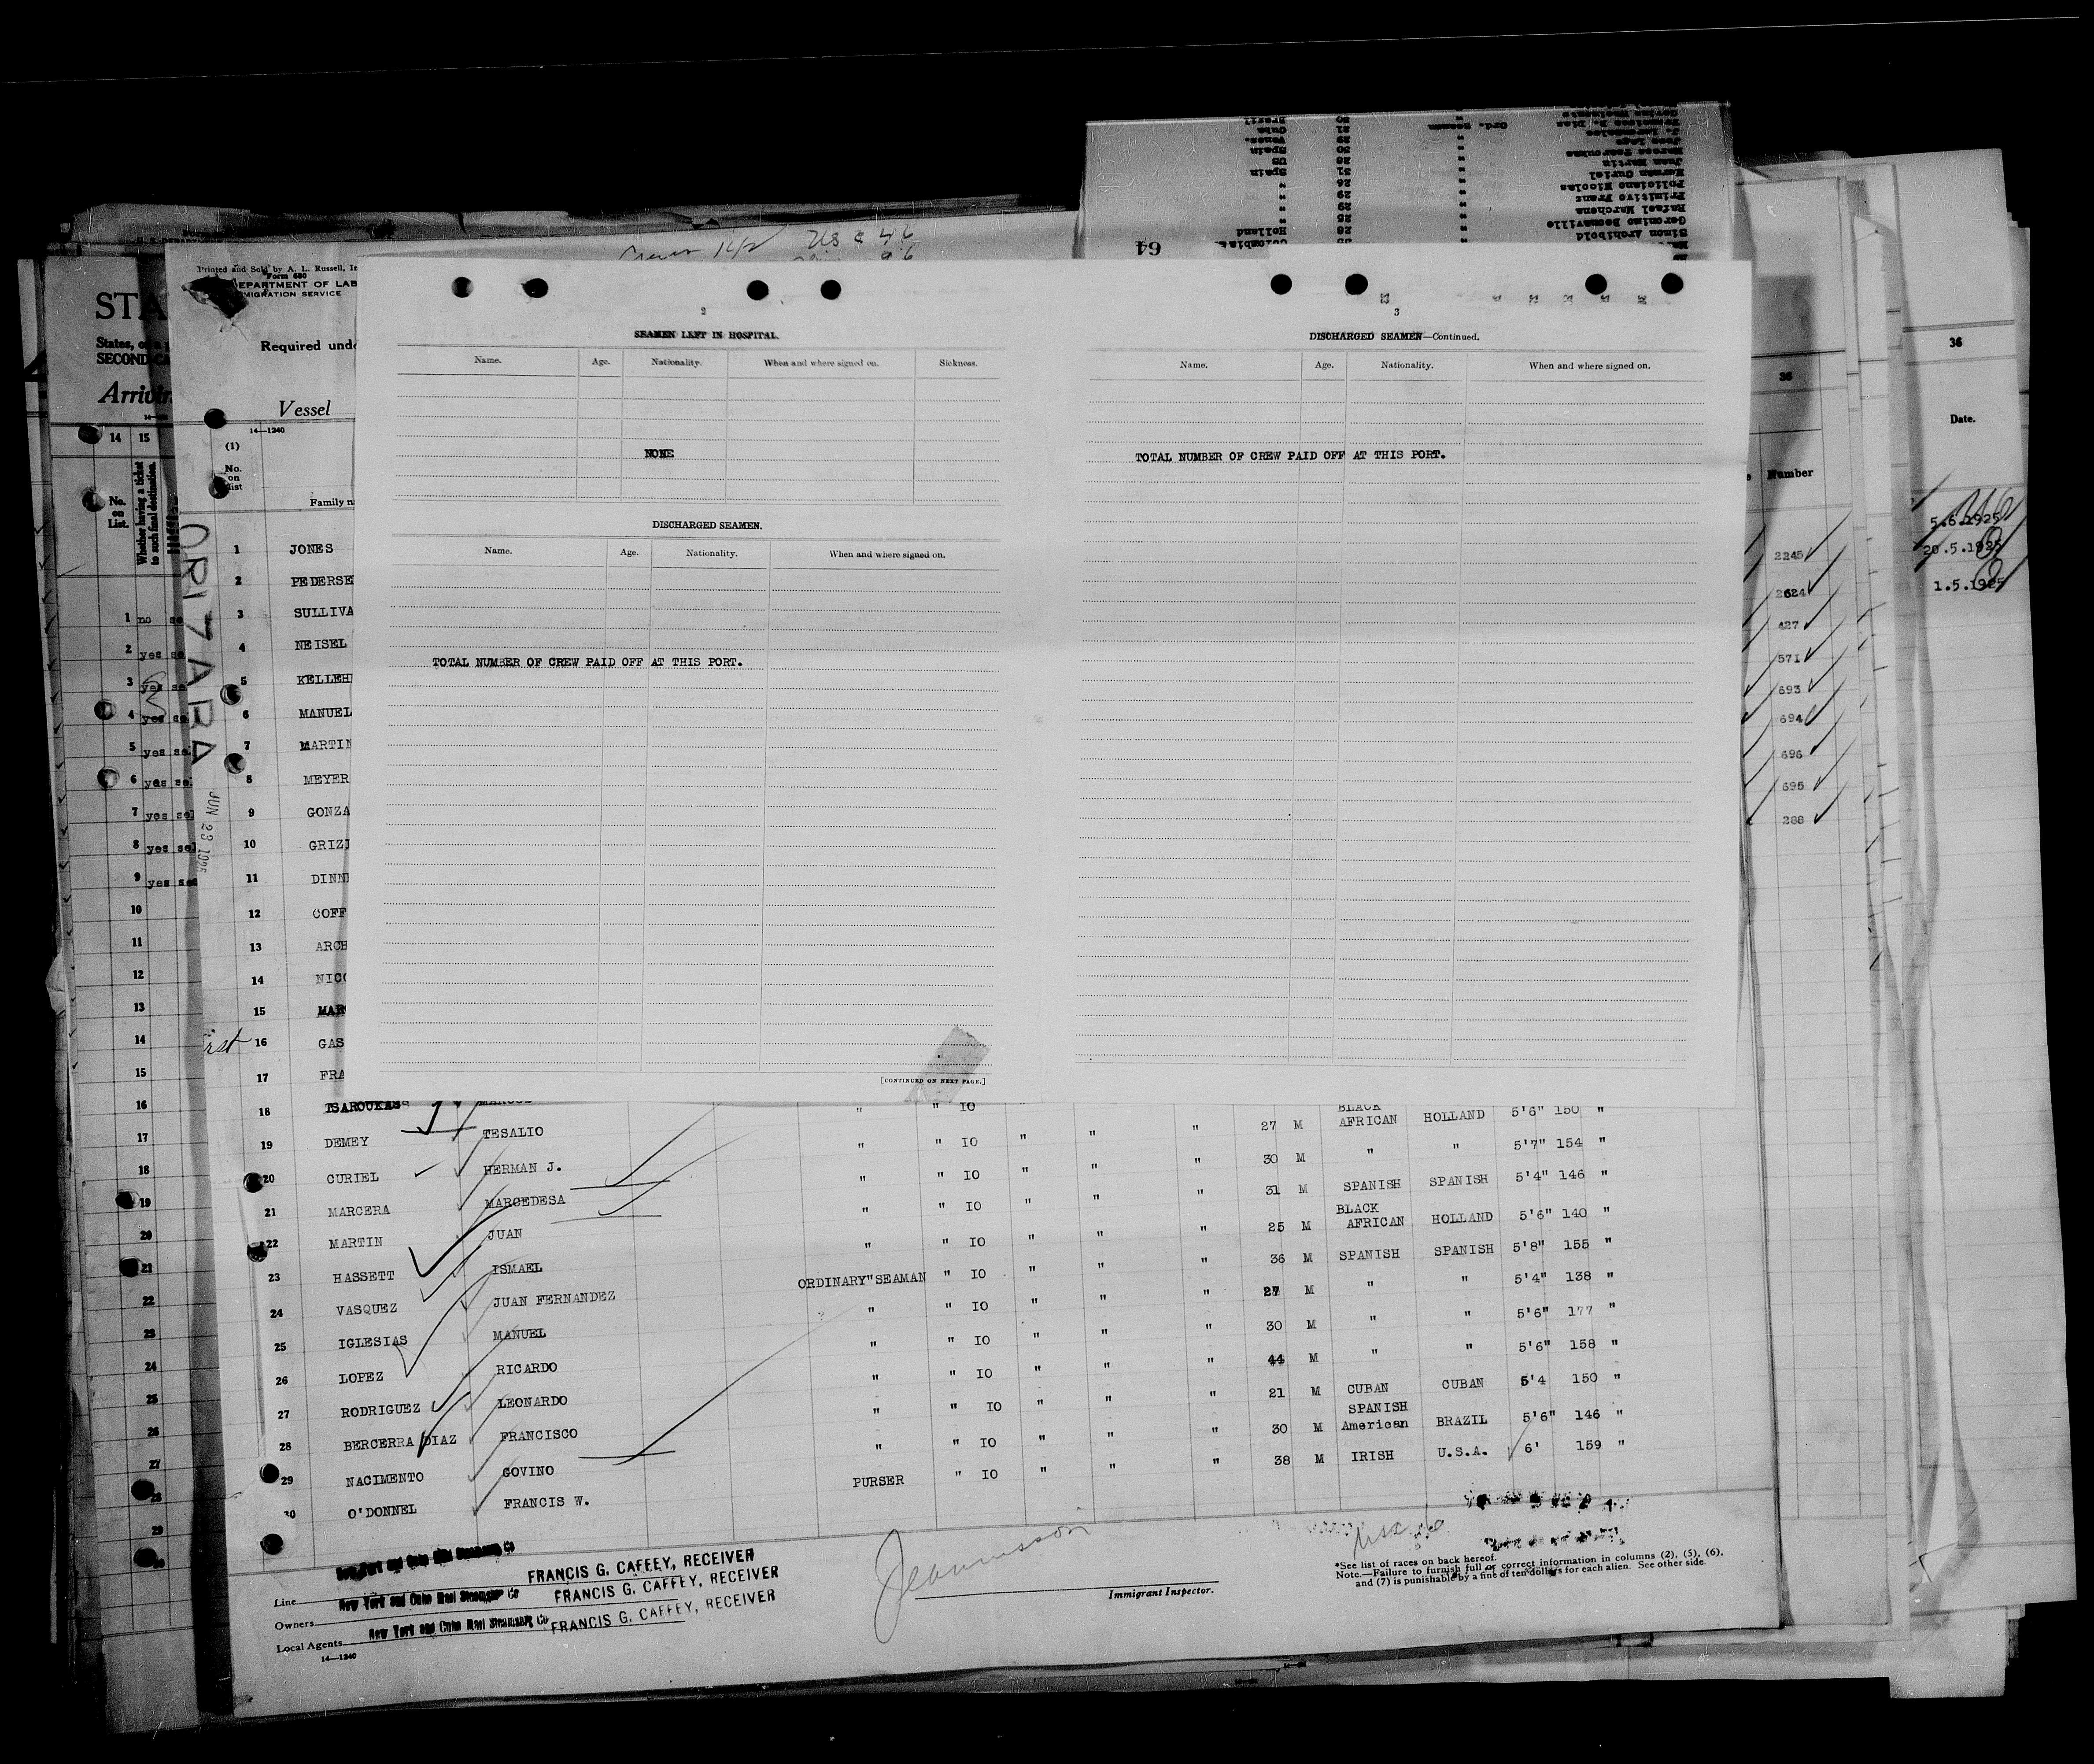 64
Colombia
Simon Archibold " 28 Holland
Geronimo Boonaville " 25 "
Rafael Marchena " 29 "
Primitivo Franz " 29 "
Policiano Nicolas " 26 "
Herman Curiel " 31 Spain
Juan Martin " 28 US
Marcos Tsaroukas " 30 Spain
Jose Lago " 29 Venez.
21 Cuba
Ord. Seaman 30 Brazil
STA
States,
SECOND-CA
Arrivin
14 15
No. on List.
Whether having a ticket to such final destination.
1 no se
2 yes se
3 yes se
4 yes se
5 yes sel
6 yes se
7 yes sel
8 yes sel
9 yes sel
10
11
12
13
14
15
16
17
18
19
20
21
22
23
24
25
26
27
28
29
Printed and Sold by A. L. Russell, In
Form 680
DEPARTMENT OF LAB
MIGRATION SERVICE
Required unde
Vessel
14—1240
(1)
No. on list
Family n
ORIZABA
JUN 23 1925
1 JONES
2 PEDERSE
3 SULLIVA
4 NEISEL
5 KELLEH
6 MANUEL
7 MARTIN
8 MEYER
9 GONZA
10 GRIZZ
11 DINN
12 COFF
13 ARCH
14 NICO
15 MAR
16 GAS
17 FRA
2
SEAMEN LEFT IN HOSPITAL.
Name. Age. Nationality. When and where signed on. Sickness.
NONE
DISCHARGED SEAMEN.
Name. Age. Nationality. When and where signed on.
TOTAL NUMBER OF CREW PAID OFF AT THIS PORT.
[CONTINUED ON NEXT PAGE.]
3
DISCHARGED SEAMEN—Continued.
Name. Age. Nationality. When and where signed on.
TOTAL NUMBER OF CREW PAID OFF AT THIS PORT.
18 TSAROUKAS MARCOS " " IO
BLACK
19 DEMEY TESALIO " " IO " " " 27 M AFRICAN HOLLAND 5'6" 150 "
20 CURIEL HERMAN J. " " IO " " " 30 M " " 5'7" 154 "
21 MARCERA MARCEDESA " " IO " " " 31 M SPANISH SPANISH 5'4" 146 "
BLACK
22 MARTIN JUAN " " IO " " " 25 M AFRICAN HOLLAND 5'6" 140 "
23 HASSETT ISMAEL ORDINARY"SEAMAN " IO " " " 36 M SPANISH SPANISH 5'8" 155 "
24 VASQUEZ JUAN FERNANDEZ " " IO " " " 27 M " " 5'4" 138 "
25 IGLESIAS MANUEL " " IO " " " 30 M " " 5'6" 177 "
26 LOPEZ RICARDO " " IO " " " 44 M " " 5'6" 158 "
27 RODRIGUEZ LEONARDO " " IO " " " 21 M CUBAN CUBAN 5'4 150 "
SPANISH
28 BERCERRA DIAZ FRANCISCO " " IO " " " 30 M American BRAZIL 5'6" 146 "
29 NACIMENTO GOVINO PURSER " IO " " " 38 M IRISH U.S.A. 6' 159 "
30 O'DONNEL FRANCIS W.
New York and Cuba Mail Steamship Co FRANCIS G. CAFFEY, RECEIVER
Line New York and Cuba Mail Steamship Co FRANCIS G. CAFFEY, RECEIVER
Owners New York and Cuba Mail Steamship Co FRANCIS G. CAFFEY, RECEIVER
Local Agents
14—1240
Immigrant Inspector.
*See list of races on back hereof.
Note.—Failure to furnish full or correct information in columns (2), (5), (6),
and (7) is punishable by a fine of ten dollars for each alien. See other side.
36
Number
2245
2624
427
571
693
694
696
695
288
36
Date.
5.6.1925
20.5.1925
1.5.1925